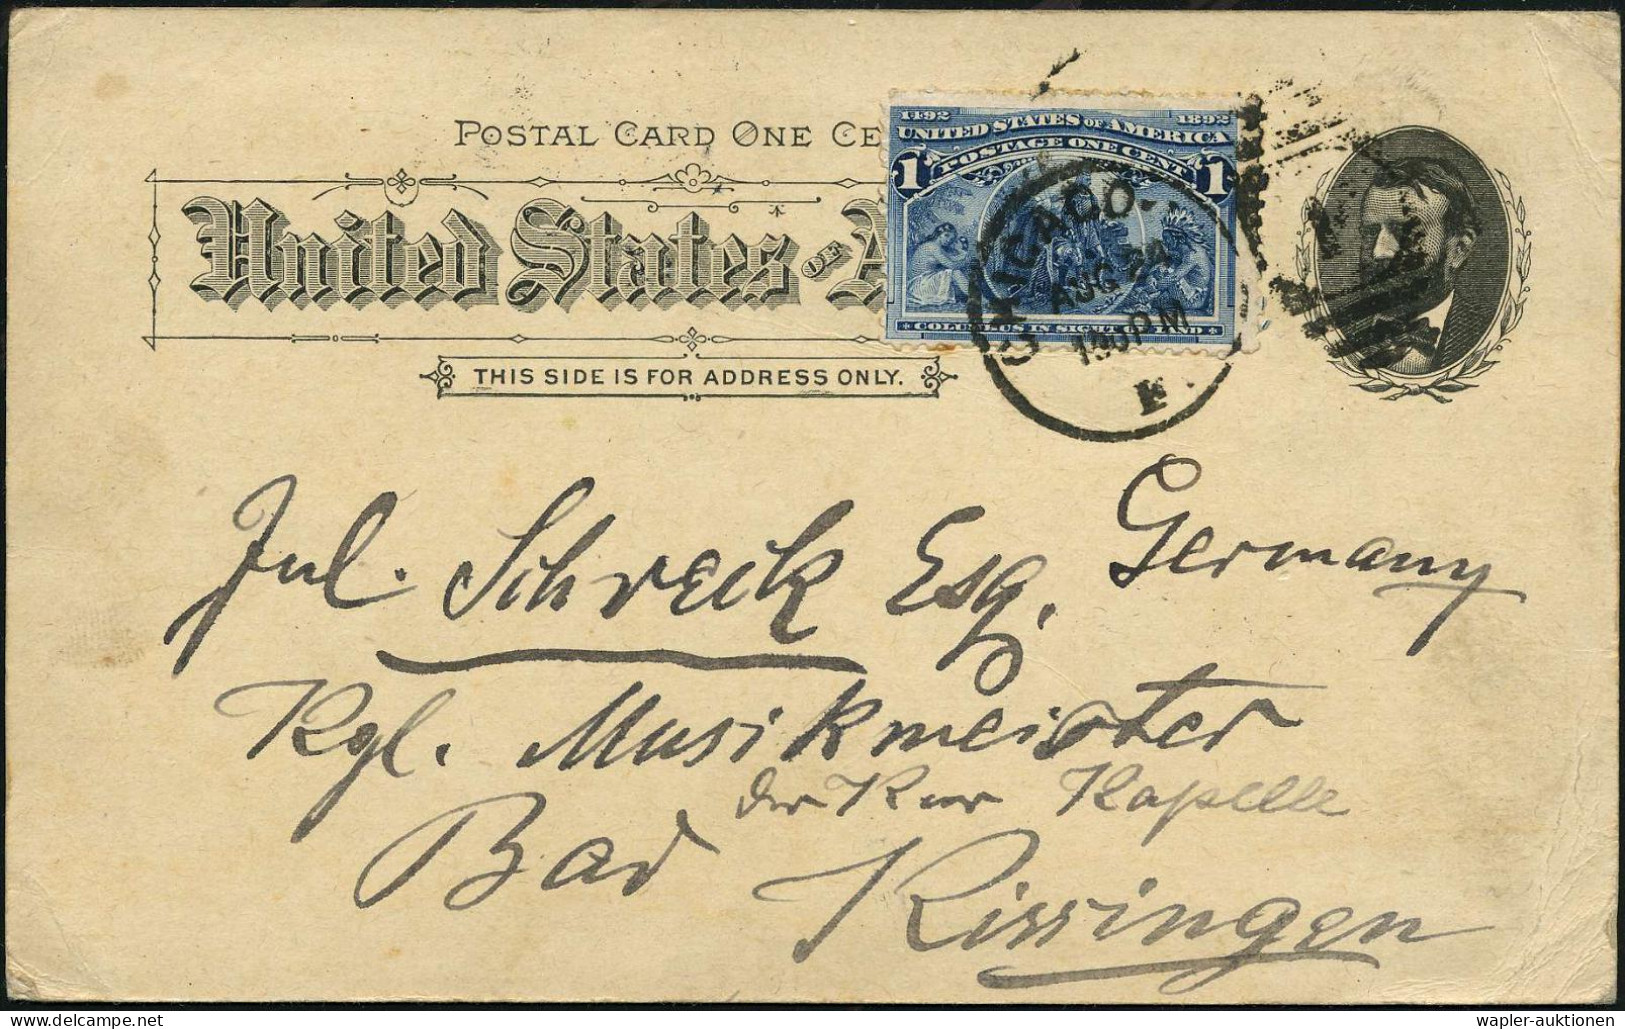 POSTAL CARD ONE CE
1492 1892
UNITED STATES OF AMERICA
POSTAGE ONE CENT
1 1
United States OF A
COLUMBUS IN SIGHT OF LAND
CHICAGO
AUG 24
130 PM
F
THIS SIDE IS FOR ADDRESS ONLY.
Jul. Schreck Esq. Germany
Kgl. Musikmeister
der Kur Kapelle
Bad Kissingen
www.delcampe.net
wapler-auktionen